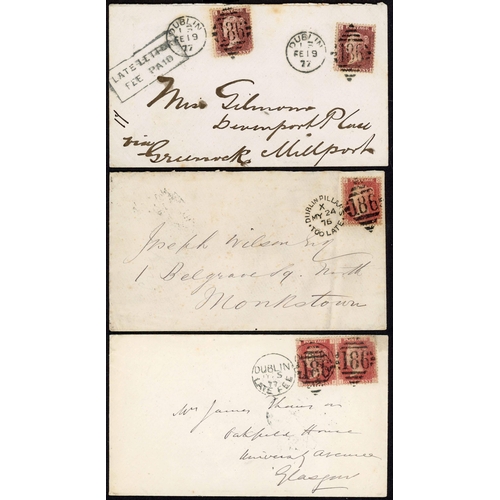 LATE LETTER
FEE PAID
DUBLIN
FE 19
77
186
DUBLIN
FE 19
77
186
Miss
Devenport Place
via
Greenock, Millport
DUBLIN PILLAR
X
MY 24
76
TOO LATE
186
Joseph Wilson Esq
1 Belgrave Sq. North
Monkstown
DUBLIN
77
LATE FEE
186
186
Mr James
Oakfield House
University Avenue
Glasgow